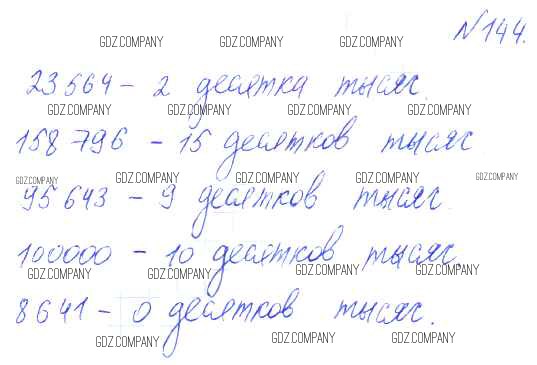 №144.
GDZ.COMPANY GDZ.COMPANY GDZ.COMPANY
23 564 – 2 десятка тысяч.
GDZ.COMPANY GDZ.COMPANY GDZ.COMPANY GDZ.COMPANY
158 796 – 15 десятков тысяч
GDZ.COMPANY GDZ.COMPANY GDZ.COMPANY GDZ.COMPANY GDZ.COMPANY
95 643 – 9 десятков тысяч.
100000 – 10 десятков тысяч.
GDZ.COMPANY GDZ.COMPANY GDZ.COMPANY GDZ.COMPANY
8641 – 0 десятков тысяч.
GDZ.COMPANY GDZ.COMPANY GDZ.COMPANY